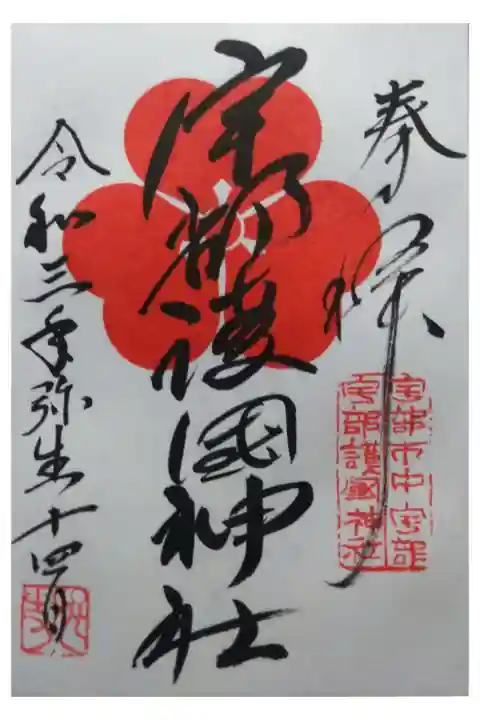 奉拝
宇部市中宇部
宇部護国神社
宇部護國神社
令和三年弥生十四日